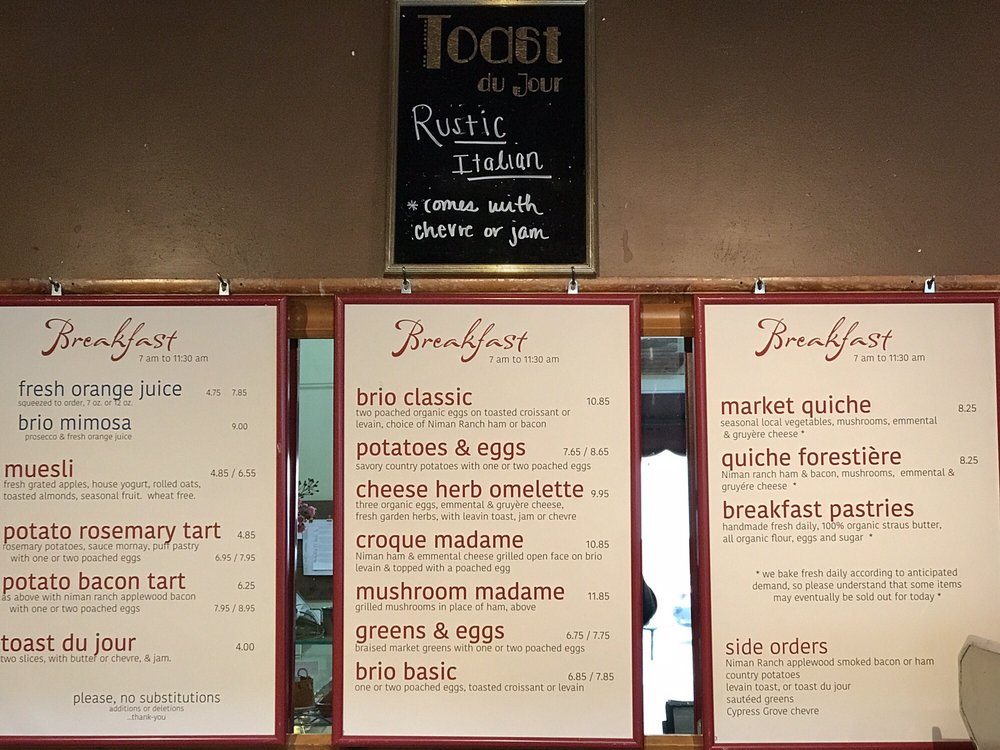 Toast
du Jour
Rustic
Italian
* comes with
chevre or jam
Breakfast
7 am to 11:30 am
fresh orange juice 4.75 7.85
squeezed to order, 7 oz. or 12 oz.
brio mimosa 9.00
prosecco & fresh orange juice
muesli 4.85 / 6.55
fresh grated apples, house yogurt, rolled oats,
toasted almonds, seasonal fruit. wheat free.
potato rosemary tart 4.85
rosemary potatoes, sauce mornay, puff pastry
with one or two poached eggs 6.95 / 7.95
potato bacon tart 6.25
as above with niman ranch applewood bacon
with one or two poached eggs 7.95 / 8.95
toast du jour 4.00
two slices, with butter or chevre, & jam.
please, no substitutions
additions or deletions
...thank-you
Breakfast
7 am to 11:30 am
brio classic 10.85
two poached organic eggs on toasted croissant or
levain, choice of Niman Ranch ham or bacon
potatoes & eggs 7.65 / 8.65
savory country potatoes with one or two poached eggs
cheese herb omelette 9.95
three organic eggs, emmental & gruyère cheese,
fresh garden herbs, with leavin toast, jam or chevre
croque madame 10.85
Niman ham & emmental cheese grilled open face on brio
levain & topped with a poached egg
mushroom madame 11.85
grilled mushrooms in place of ham, above
greens & eggs 6.75 / 7.75
braised market greens with one or two poached eggs
brio basic 6.85 / 7.85
one or two poached eggs, toasted croissant or levain
Breakfast
7 am to 11:30 am
market quiche 8.25
seasonal local vegetables, mushrooms, emmental
& gruyère cheese *
quiche forestière 8.25
Niman ranch ham & bacon, mushrooms, emmental &
gruyére cheese *
breakfast pastries
handmade fresh daily, 100% organic straus butter,
all organic flour, eggs and sugar *
* we bake fresh daily according to anticipated
demand, so please understand that some items
may eventually be sold out for today *
side orders
Niman Ranch applewood smoked bacon or ham
country potatoes
levain toast, or toast du jour
sautéed greens
Cypress Grove chevre